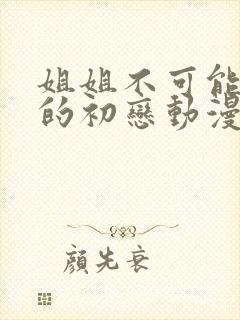 姐姐不可能
的初戀動漫
顏先衰